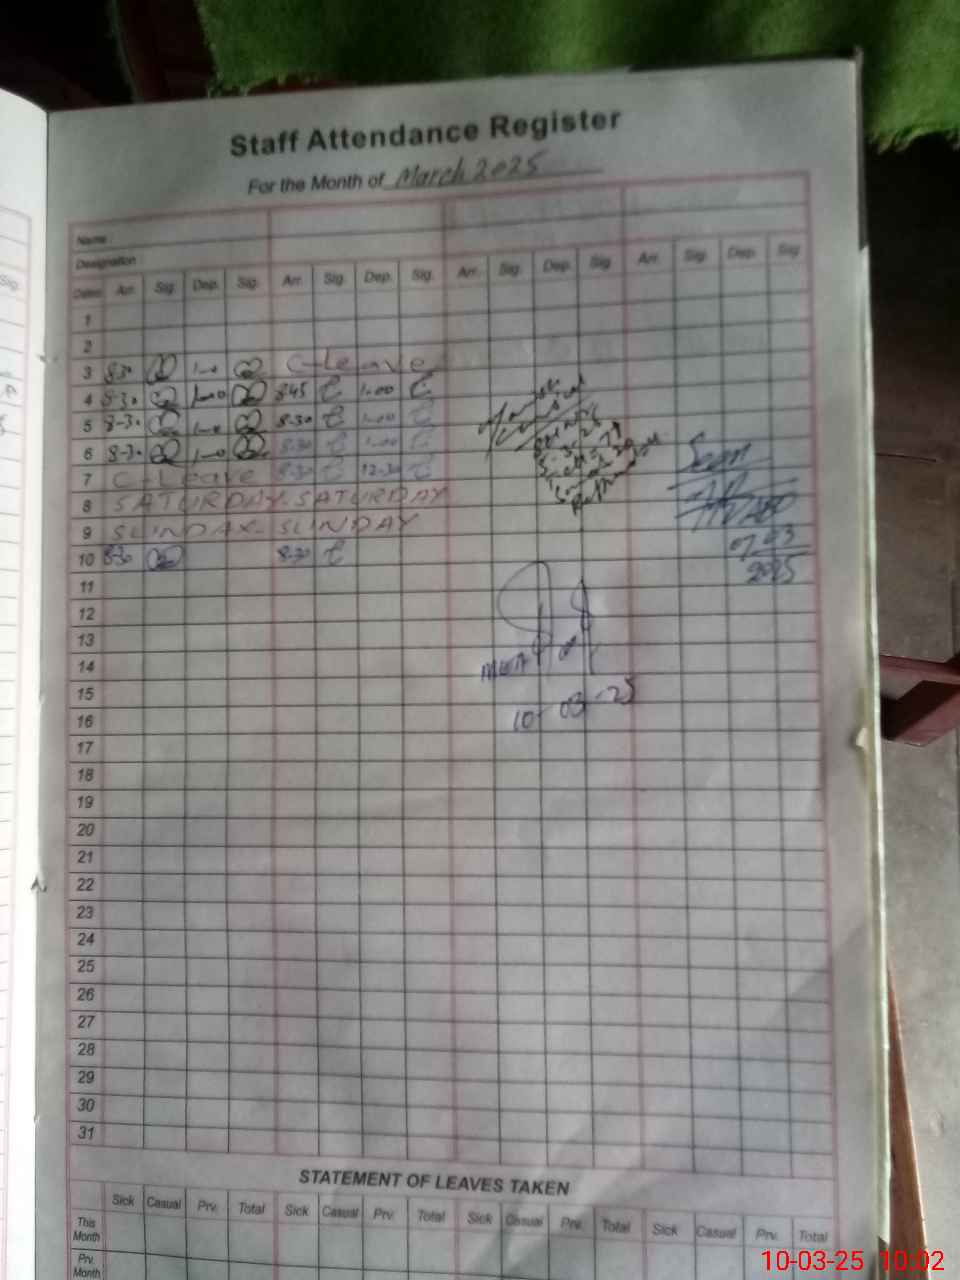 Staff Attendance Register
For the Month of March 2025
Name
Designation
Dates Arr. Sig. Dep. Sig. Arr. Sig. Dep. Sig. Arr. Sig. Dep. Sig. Arr. Sig. Dep. Sig.
1
2
3 8-30 1-00 C-Leave
4 8-30 1-00 8-45 1-00
5 8-30 1-00 8-30 1-00
6 8-30 1-00 8-30 1-00
7 C-Leave 8-30 12-30
8 SATURDAY - SATURDAY
9 SUNDAY - SUNDAY
10 8-30 8-30
Seen
07.03
2025
11
12
13
14
15
10-03-25
16
17
18
19
20
21
22
23
24
25
26
27
28
29
30
31
STATEMENT OF LEAVES TAKEN
Sick Casual Prv. Total Sick Casual Prv. Total Sick Casual Prv. Total Sick Casual Prv. Total
This Month
Prv. Month
10-03-25 10:02